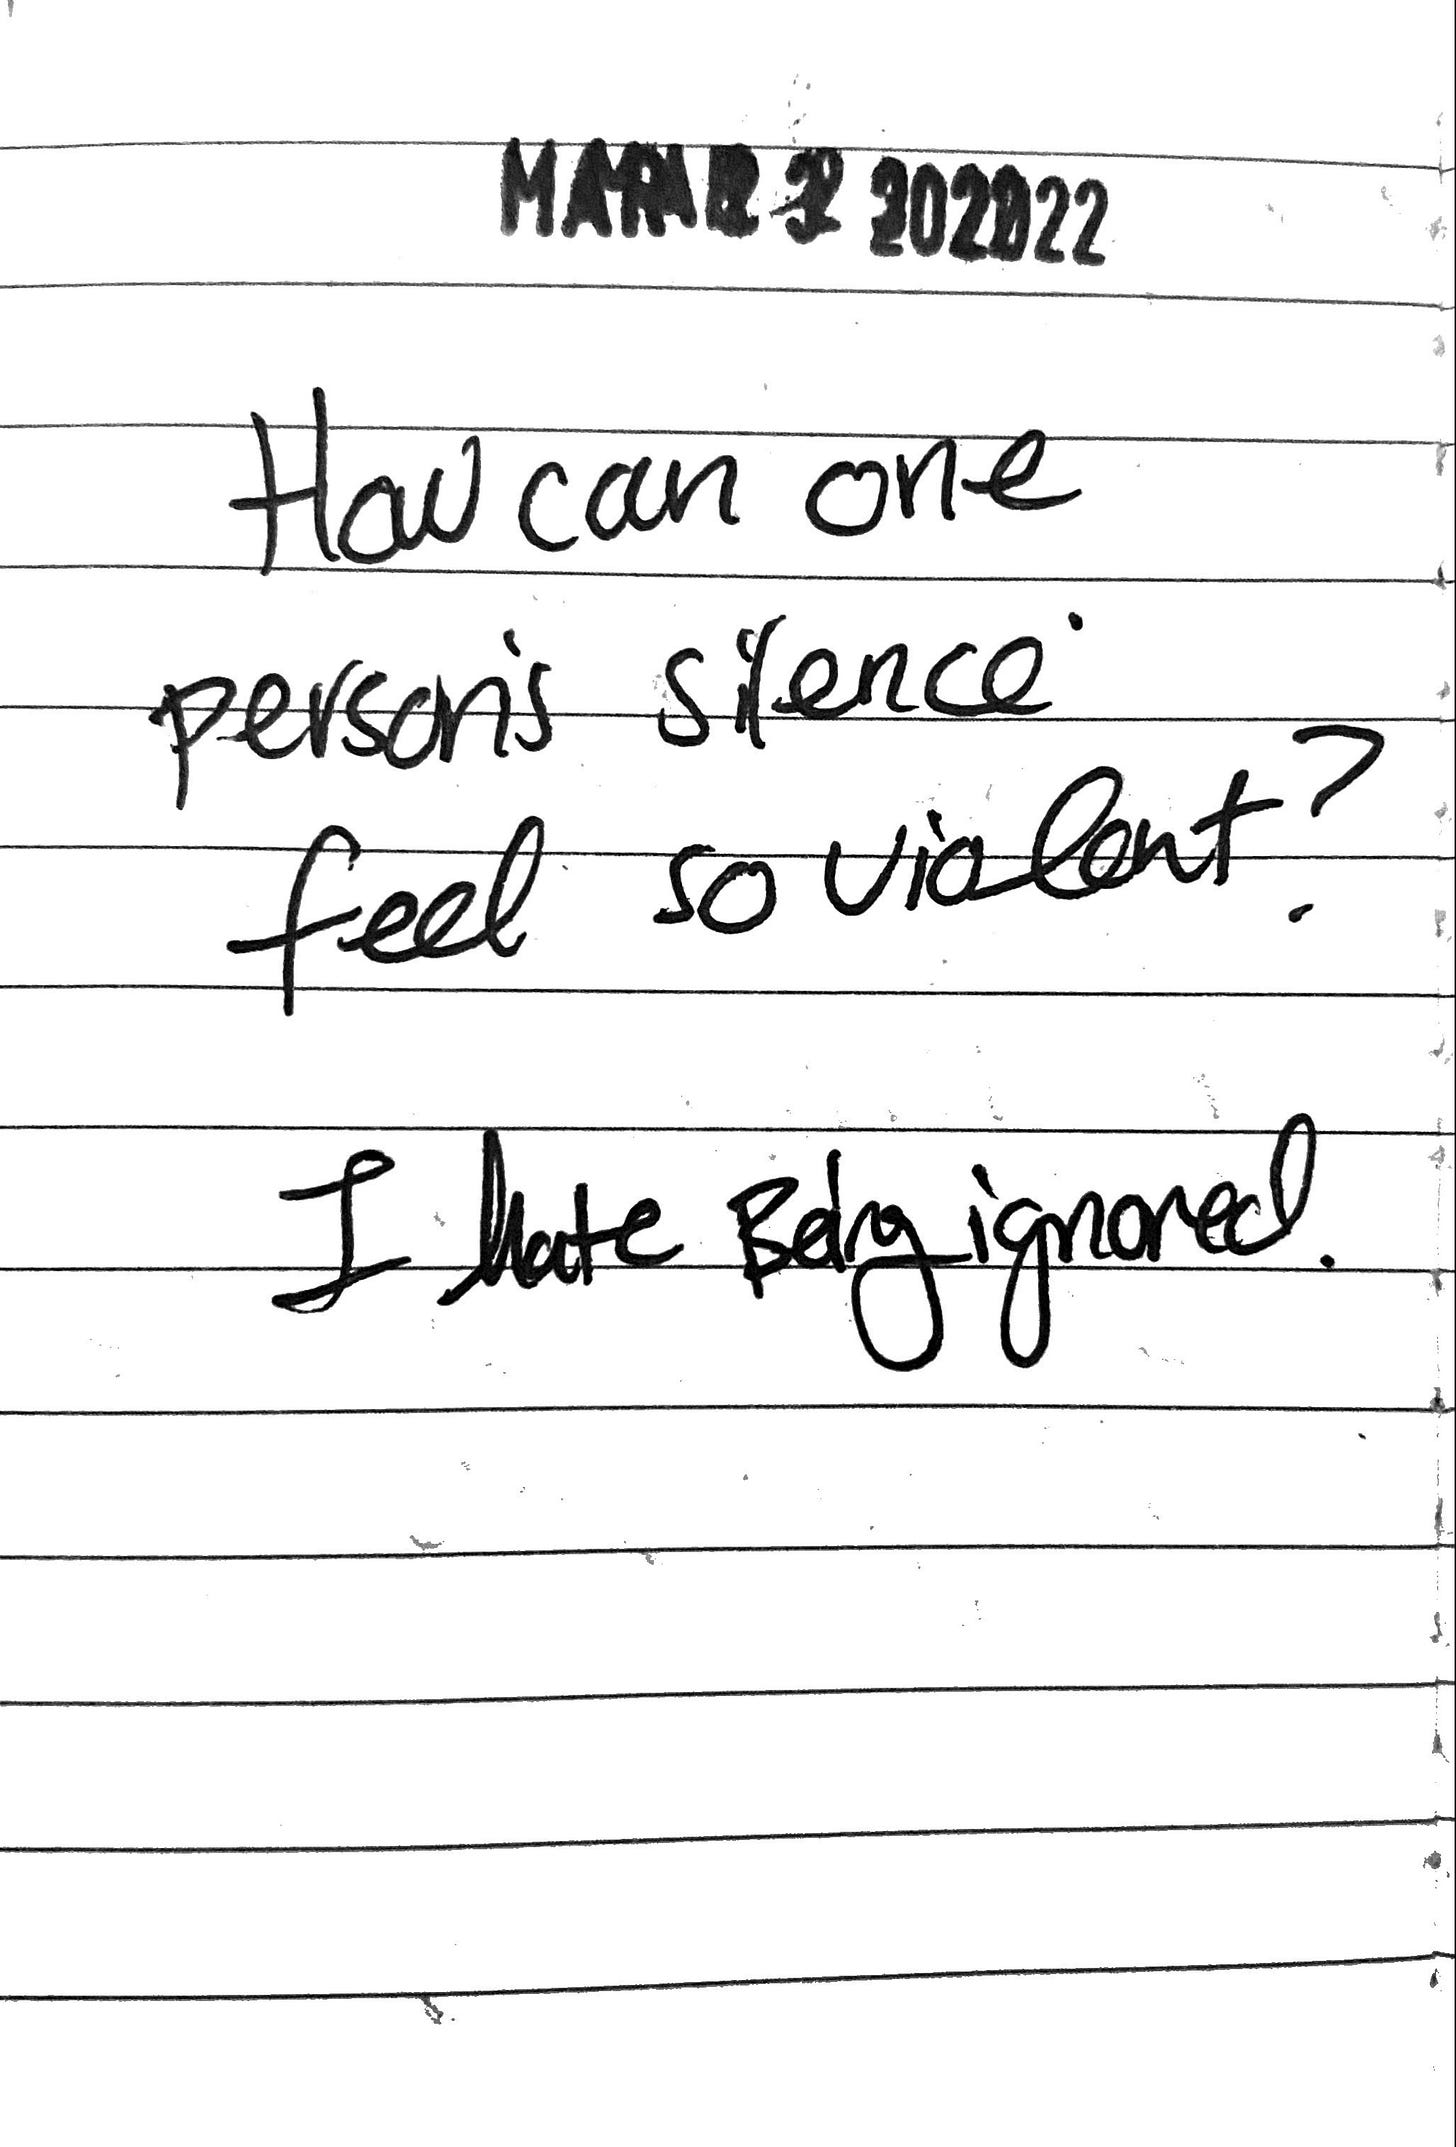 How can one
person's silence
feel so violent?
I hate Being ignored.